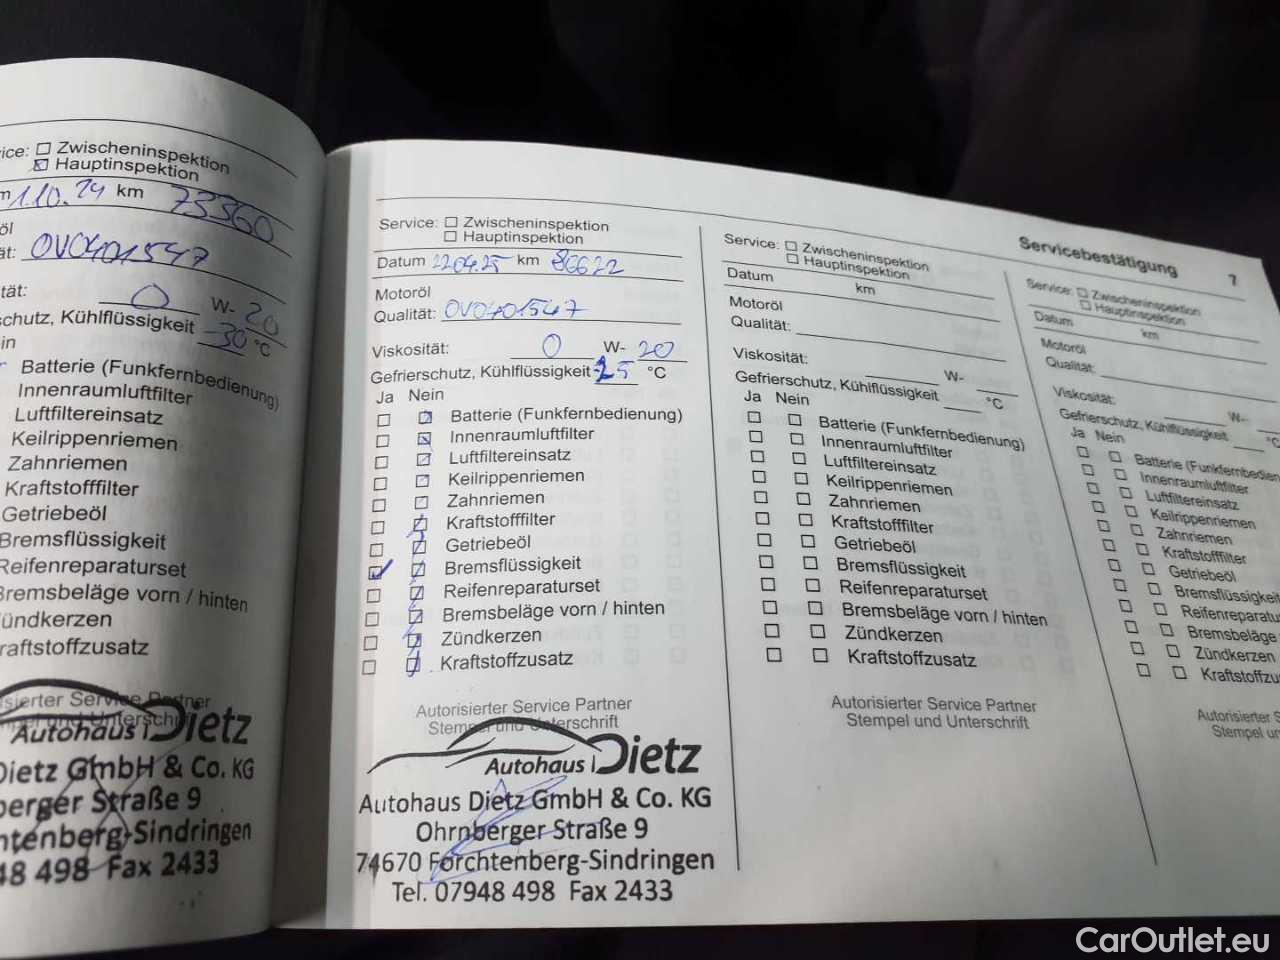 Zwischeninspektion
Hauptinspektion
1.10.24 km 73360
OV0401547
0 W- 20
schutz, Kühlflüssigkeit -30 °C
Batterie (Funkfernbedienung)
Innenraumluftfilter
Luftfiltereinsatz
Keilrippenriemen
Zahnriemen
Kraftstofffilter
Getriebeöl
Bremsflüssigkeit
Reifenreparaturset
Bremsbeläge vorn / hinten
Zündkerzen
raftstoffzusatz
isierter Service Partner
Stempel und Unterschrift
Autohaus Dietz
Dietz GmbH & Co. KG
berger Straße 9
htenberg-Sindringen
48 498 Fax 2433
Service: Zwischeninspektion
Hauptinspektion
Datum 22.04.25 km 86622
Motoröl
Qualität: OV0401547
Viskosität: 0 W- 20
Gefrierschutz, Kühlflüssigkeit -25 °C
Ja Nein
Batterie (Funkfernbedienung)
Innenraumluftfilter
Luftfiltereinsatz
Keilrippenriemen
Zahnriemen
Kraftstofffilter
Getriebeöl
Bremsflüssigkeit
Reifenreparaturset
Bremsbeläge vorn / hinten
Zündkerzen
Kraftstoffzusatz
Autorisierter Service Partner
Stempel und Unterschrift
Autohaus Dietz
Autohaus Dietz GmbH & Co. KG
Ohrnberger Straße 9
74670 Forchtenberg-Sindringen
Tel. 07948 498 Fax 2433
Servicebestätigung 7
Service: Zwischeninspektion
Hauptinspektion
Datum km
Motoröl
Qualität:
Viskosität: W-
Gefrierschutz, Kühlflüssigkeit °C
Ja Nein
Batterie (Funkfernbedienung)
Innenraumluftfilter
Luftfiltereinsatz
Keilrippenriemen
Zahnriemen
Kraftstofffilter
Getriebeöl
Bremsflüssigkeit
Reifenreparaturset
Bremsbeläge vorn / hinten
Zündkerzen
Kraftstoffzusatz
Autorisierter Service Partner
Stempel und Unterschrift
Service: Zwischeninspektion
Hauptinspektion
Datum km
Motoröl
Qualität:
Viskosität: W-
Gefrierschutz, Kühlflüssigkeit °C
Ja Nein
Batterie (Funkfernbedien
Innenraumluftfilter
Luftfiltereinsatz
Keilrippenriemen
Zahnriemen
Kraftstofffilter
Getriebeöl
Bremsflüssigkeit
Reifenreparatur
Bremsbeläge
Zündkerzen
Kraftstoffzu
Autorisierter S
Stempel un
CarOutlet.eu